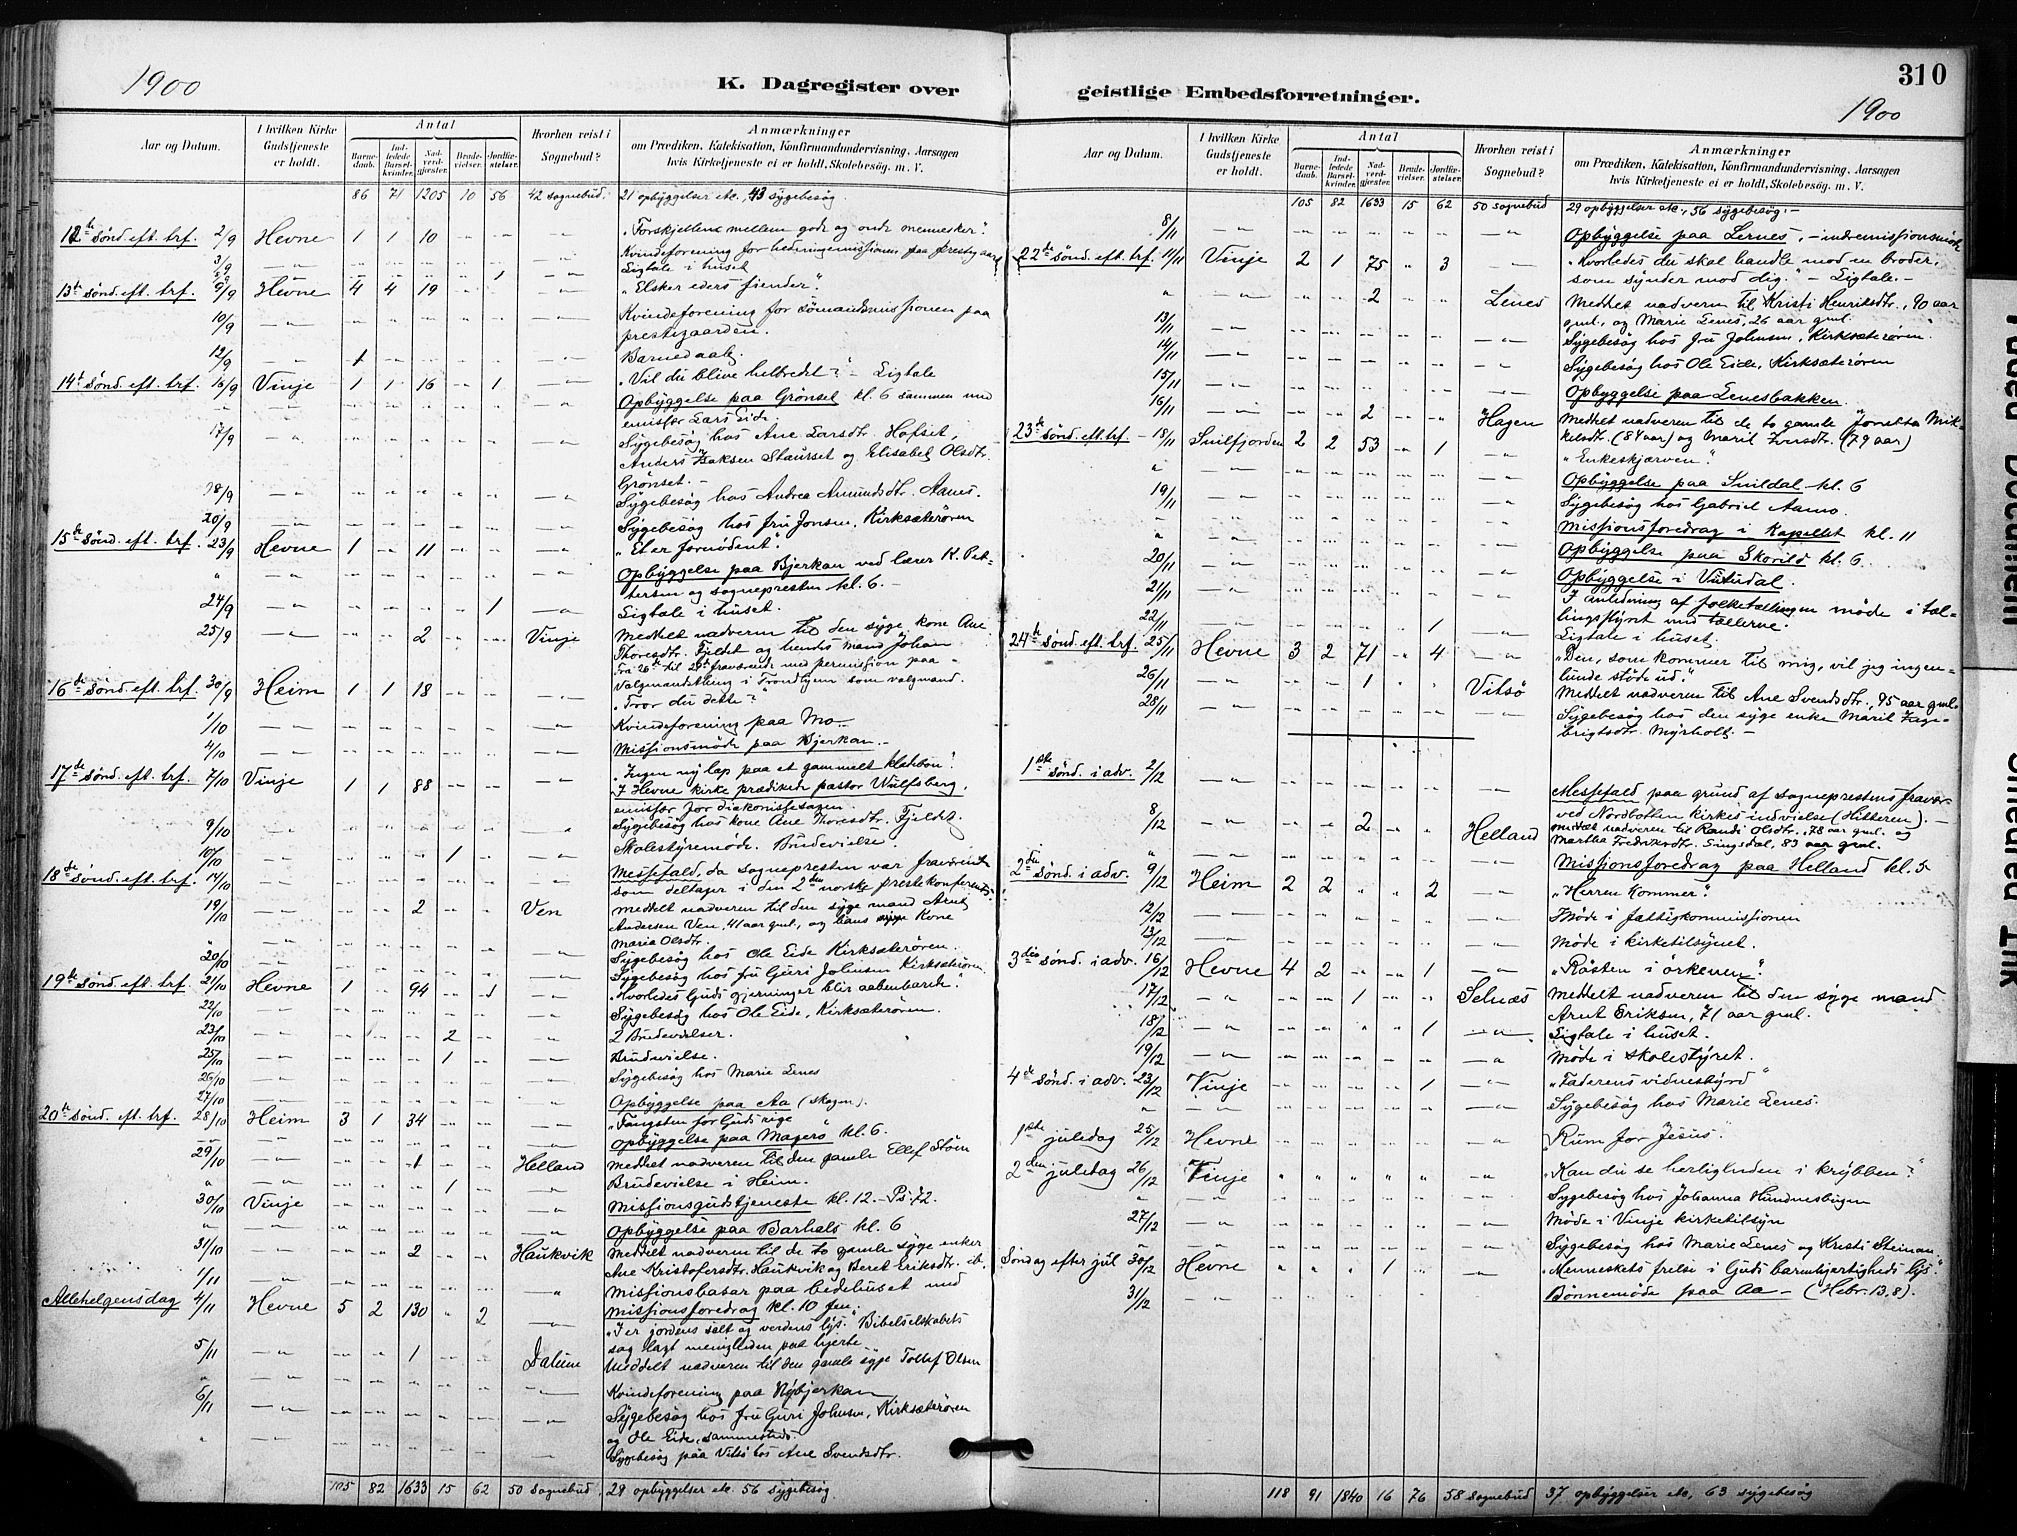 1900
K. Dagregister over
Aar og Datum.
I hvilken Kirke Gudstjeneste er holdt.
Antal
Barnedaab.
Indledede Barselkvinder.
Nadverdgjester.
Brudevielser.
Jordfæstelser.
Hvorhen reist i Sognebud?
Anmærkninger
om Prædiken, Katekisation, Konfirmandundervisning, Aarsagen
hvis Kirketjeneste ei er holdt, Skolebesøg, m. V.
86 71 1205 10 56 42 sognebud. 21 opbyggelser etc., 43 sygebesøg
12te sønd. eft. trf. 2/9 Hevne 1 1 10 „Forskjellene mellem gode og onde mennesker".
3/9 Kvindeforening for hedningemissionen paa prestegaard
1 Ligtale i huset
13te sønd. eft. trf. 9/9 Hevne 4 4 19 „Elsker eders fiender".
10/9 Kvindeforening for sømandsmissionen paa
prestegaarden.
12/9 1 Barnedaab.
14de sønd. eft. trf. 16/9 Vinje 1 1 16 1 „Vil du blive helbredet?" – Ligtale
Opbyggelse paa Grønset kl. 6 sammen med
emissær Lars Eide.
17/9 Sygebesøg hos Ane Larsdtr. Hofset,
Anders Isaksen Staurset og Elisabet Olsdtr.
Grønset. –
18/9 Sygebesøg hos Andrea Amundsdtr. Aanes.
20/9 Sygebesøg hos fru Jonsen, Kirksæterøren
15de sønd. eft. trf. 23/9 Hevne 1 11 „Et er fornødent".
Opbyggelse paa Bjerkan ved lærer K. Pet-
tersen og sognepresten kl. 6. –
24/9 1 Ligtale i huset.
25/9 2 Vinje Meddelt nadveren til den syge kone Ane
Thoresdtr. Fjeldet og hendes mand Johan
Fra 26de til 29de fraværende med permission paa
Valgmandsthing i Trondhjem som valgmand.
16de sønd. eft. trf. 30/9 Heim 1 1 18 „Tror du dette?"
1/10 Kvindeforening paa Mo.
4/10 Missionsmøde paa Bjerkan. –
17de sønd. eft. trf. 7/10 Vinje 1 1 88 „Ingen ny lap paa et gammelt klædebon".
I Hevne kirke prædikede pastor Wulfsberg,
emissær for diakonissesagen.
9/10 Sygebesøg hos kone Ane Thoresdtr. Fjeldet.
10/10 1 Skolestyremøde. Brudevielse.
18de sønd. eft. trf. 14/10 Messefald, da sognepresten var fraværende
som deltager i den 2den norske prestekonference.
19/10 2 Ven Meddelt nadveren til den syge mand Arnt
Andersen Ven, 41 aar gml., og hans kone
Maria Olsdtr.
20/10 Sygebesøg hos Ole Eide Kirksæterøren.
Sygebesøg hos fru Guri Johnsen Kirksæterøren
19de sønd. eft. trf. 21/10 Hevne 1 94 1 „Hvorledes Guds gjerninger blir aabenbarede".
22/10 Sygebesøg hos Ole Eide, Kirksæterøren.
23/10 2 2 Brudevielser.
25/10 1 Brudevielse.
26/10 Sygebesøg hos Marie Lenes
27/10 Opbyggelse paa Aa (skogen).
20de sønd. eft. trf. 28/10 Heim 3 1 34 „Fangsten for Guds rige
Opbyggelse paa Magerø kl. 6.
29/10 1 Helland Meddelt nadveren til den gamle Ellef Strøm
1 Brudevielse i Heim.
30/10 Vinje Missionsgudstjeneste kl. 12. – Ps. 72.
Opbyggelse paa Barhals kl. 6
31/10 2 Haukvik Meddelt nadveren til de to gamle syge enker
Ane Kristofersdtr. Haukvik og Beret Eriksdtr. ib.
1/11 Missionsbasar paa bedehuset med
missionsforedrag kl. 10 fm.
Allehelgensdag 4/11 Hevne 5 2 130 2 „I er jordens salt og verdens lys". Bibelselskabets
sag lagt menigheden paa hjerte.
5/11 1 Dalum Meddelt nadveren til den gamle syge Tollef Olsen
Kvindeforening paa Nybjerkan
6/11 Sygebesøg hos fru Guri Johnsen, Kirksæterøren
og Ole Eide, sammesteds.
Sygebesøg paa Vitsø hos Ane Svendsdtr.
105 82 1633 15 62 50 sognebud. 29 opbyggelser etc. 56 sygebesøg.
310
1900
geistlige Embedsforretninger.
Aar og Datum.
I hvilken Kirke Gudstjeneste er holdt.
Antal
Barnedaab.
Indledede Barselkvinder.
Nadverdgjester.
Brudevielser.
Jordfæstelser.
Hvorhen reist i Sognebud?
Anmærkninger
om Prædiken, Katekisation, Konfirmandundervisning, Aarsagen
hvis Kirketjeneste ei er holdt, Skolebesøg, m. V.
105 82 1633 15 62 50 sognebud 29 opbyggelser etc., 56 sygebesøg. –
8/11 Opbyggelse paa Lernes, – indremissionsmøde
22de sønd. eft. trf. 11/11 Vinje 2 1 75 3 „Hvorledes du skal handle mod en broder,
som synder mod dig." – Ligtale. –
2 Lenes Meddelt nadveren til Kristi Henriksdtr., 90 aar
gml., og Marie Lenes, 26 aar gml.
13/11 Sygebesøg hos fru Johnsen, Kirksæterøren
14/11 Sygebesøg hos Ole Eide, Kirksæterøren
15/11 Opbyggelse paa Lenesbakken.
16/11 2 Hagen Meddelt nadveren til de to gamle Jonetta Mik-
kelsdtr. (84 aar) og Marit Iversdtr. (79 aar)
23de sønd. eft. trf. 18/11 Snilfjorden 2 2 53 1 „Enkeskjærven".
Opbyggelse paa Snildal kl. 6
19/11 Sygebesøg hos Gabriel Aamo.
Missionsforedrag i Kapellet kl. 11
Opbyggelse paa Skorild kl. 6.
20/11 Opbyggelse i Vutudal.
21/11 I anledning af folketællingen møde i tæl-
lingsstyret med tællerne.
22/11 1 Ligtale i huset.
24de sønd. eft. trf. 25/11 Hevne 3 2 71 4 „Den, som kommer til mig, vil jeg ingen-
lunde støde ud."
26/11 1 Vitsø Meddelt nadveren til Ane Svendsdtr., 95 aar gml.
28/11 Sygebesøg hos den syge enke Marit Inge-
brigtsdtr. Myrholt. –
1ste sønd. i adv. 2/12 Messefald paa grund af sogneprestens fravær
ved Nordbotten kirkes indvielse (Hitteren). –
8/12 2 Helland Meddelt nadveren til Randi Olsdtr., 78 aar gml. og
Martha Fredriksdtr. Singsdal, 83 aar gml.
Missionsforedrag paa Helland kl. 5
2den sønd. i adv. 9/12 Heim 2 2 2 „Herren kommer".
12/12 Møde i fattigkommissionen
13/12 Møde i kirketilsynet.
3die sønd. i adv. 16/12 Hevne 4 2 1 „Røsten i ørkenen".
17/12 1 Selnæs Meddelt nadveren til den syge mand
Arnt Eriksen, 71 aar gml.
18/12 1 Ligtale i huset.
19/12 Møde i skolestyret.
4de sønd. i adv. 23/12 Vinje 1 „Faderens vidnesbyrd"
Sygebesøg hos Marie Lenes.
1ste juledag 25/12 Hevne „Rum for Jesus".
2den juledag 26/12 Vinje „Kan du se herligheden i krybben?"
Sygebesøg hos Johanna Hundnesbugen
27/12 Møde i Vinje kirketilsyn
Sygebesøg hos Marie Lenes og Kristi Steinan.
Søndag efter jul 30/12 Hevne 1 „Menneskets frelse i Guds barmhjertigheds lys".
31/12 Bønnemøde paa Aa – (Hebr. 13,8).
118 91 1840 16 76 58 sognebud 37 opbyggelser etc, 63 sygebesøg